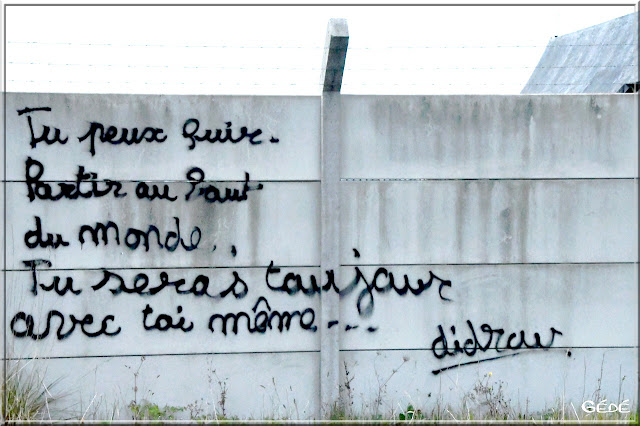 Tu peux fuir.
Partir au bout
du monde..
Tu seras toujour
avec toi même ----
didrau
GÉDÉ